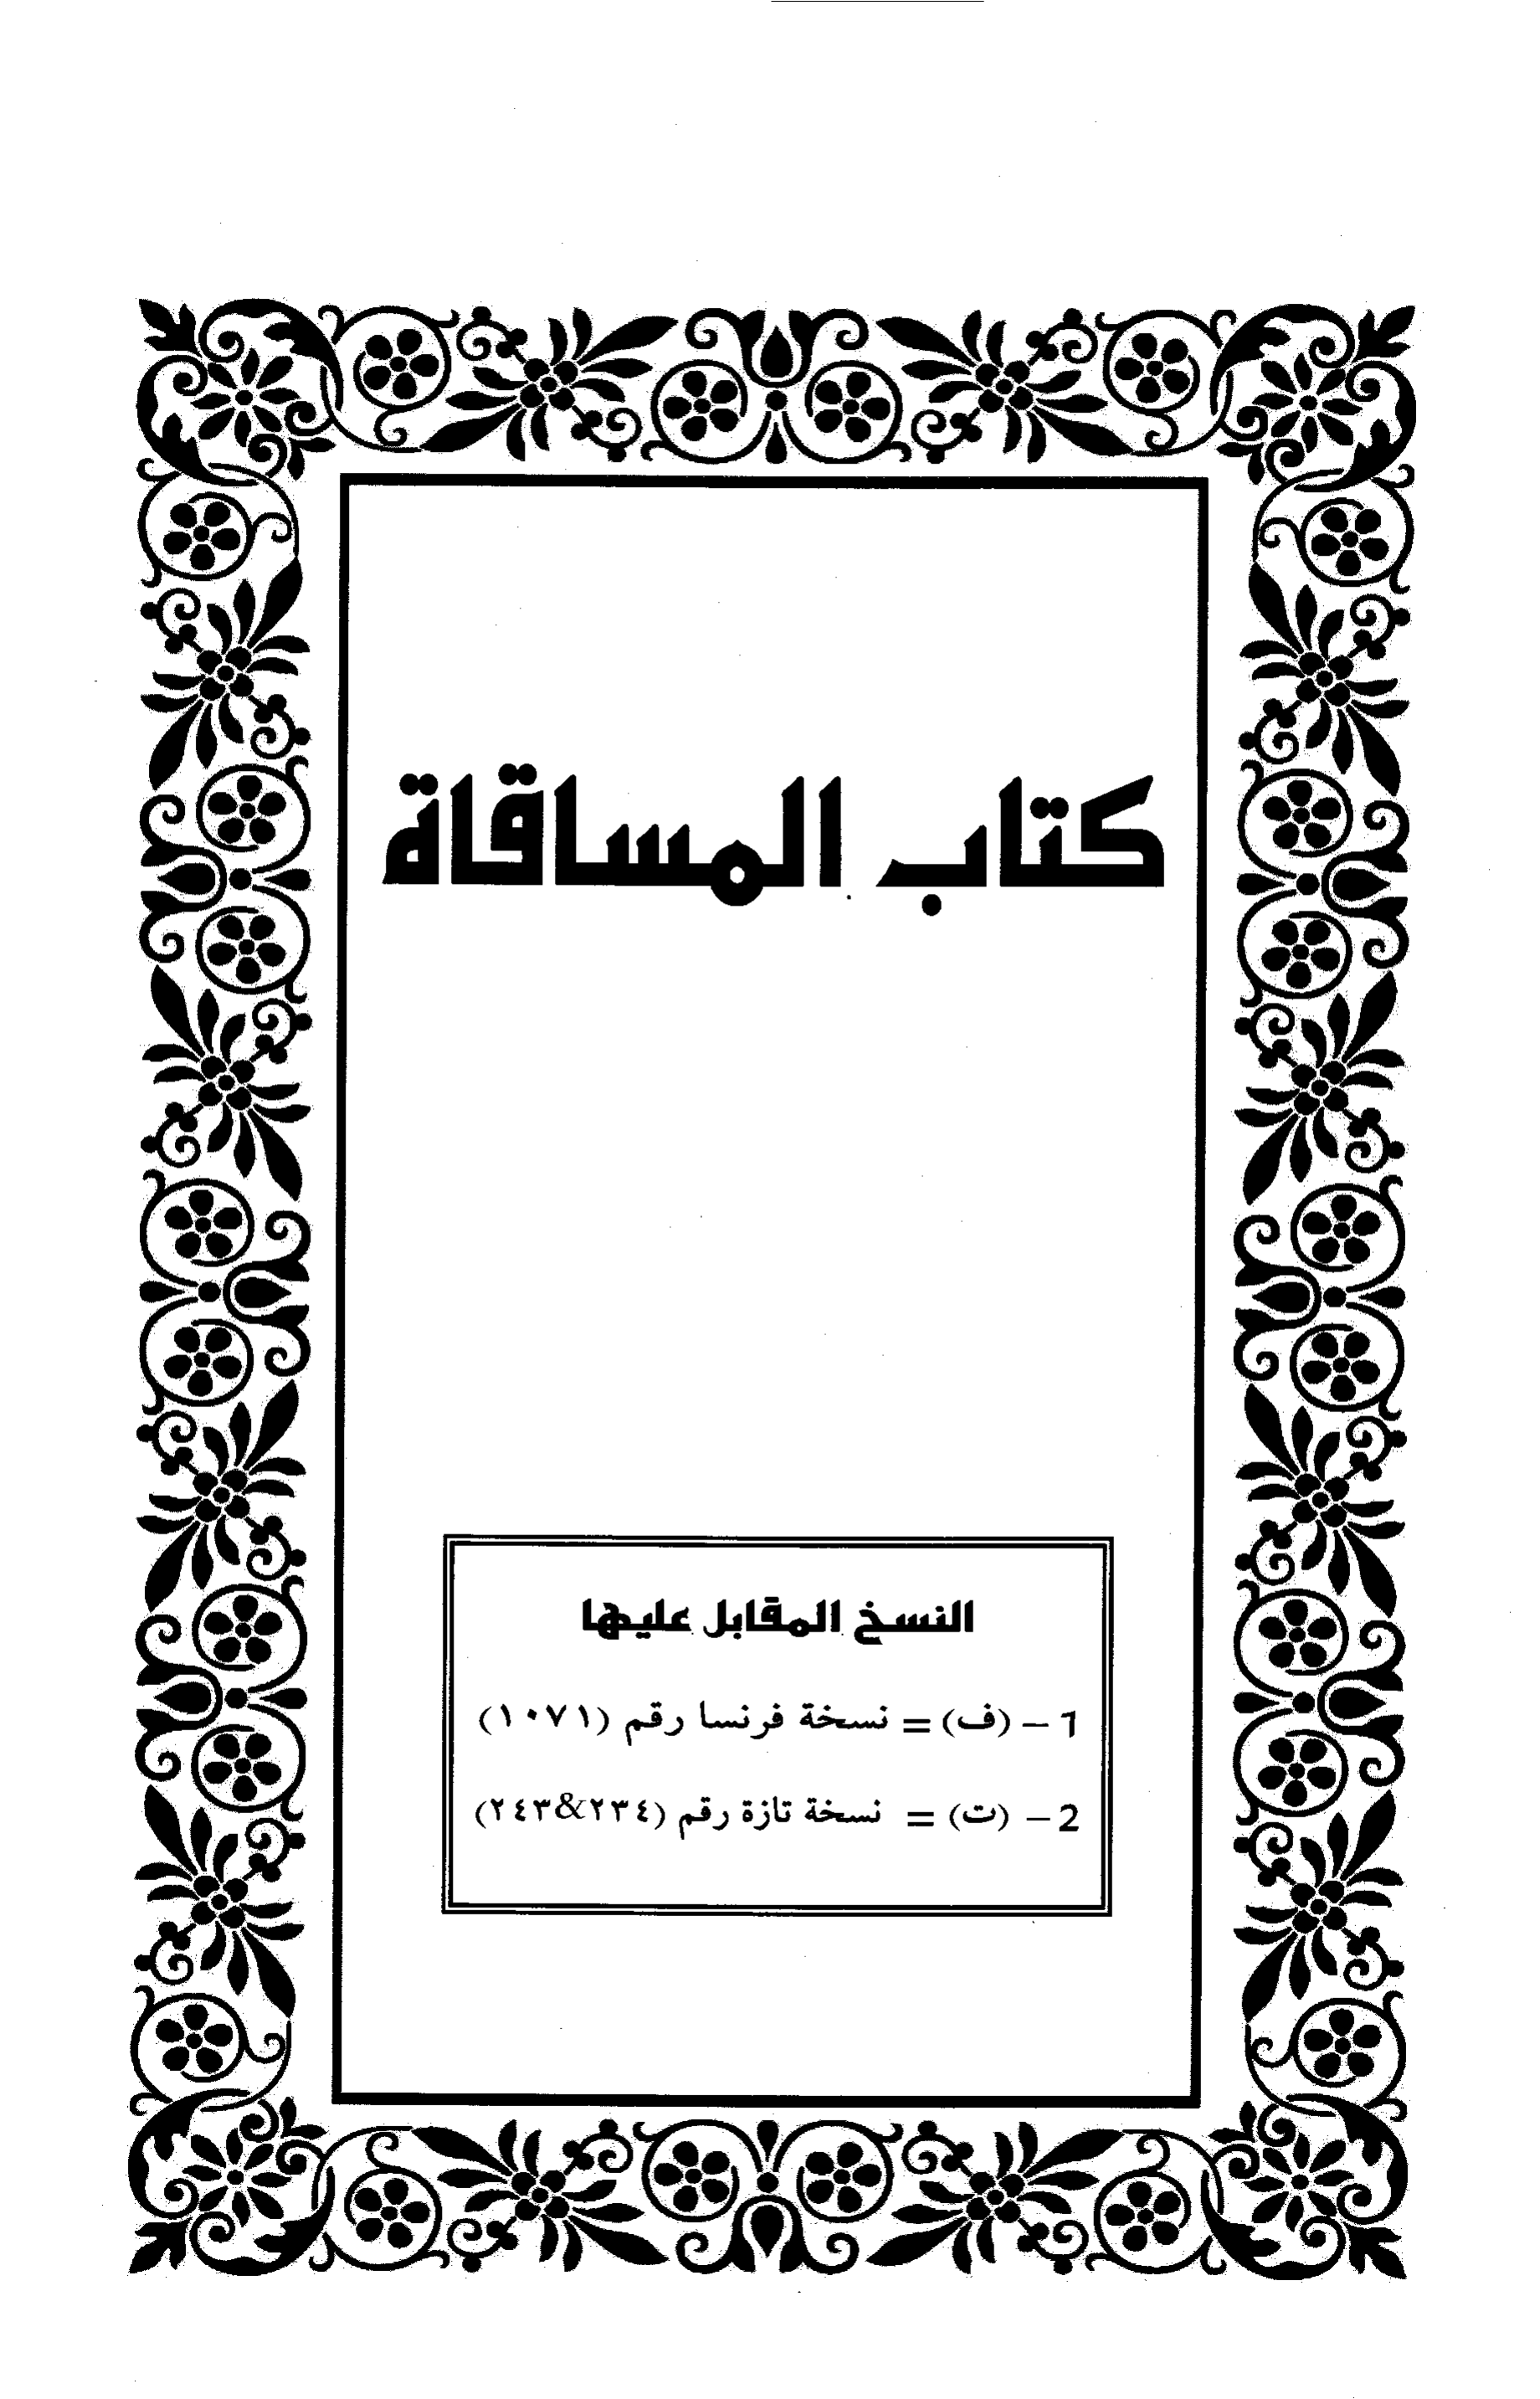 كتاب المساقاة
النسخ المقابل عليها
1 - (ف) = نسخة فرنسا رقم (١٠٧١)
2 - (ت) = نسخة تازة رقم (٢٣٤&٢٤٣)